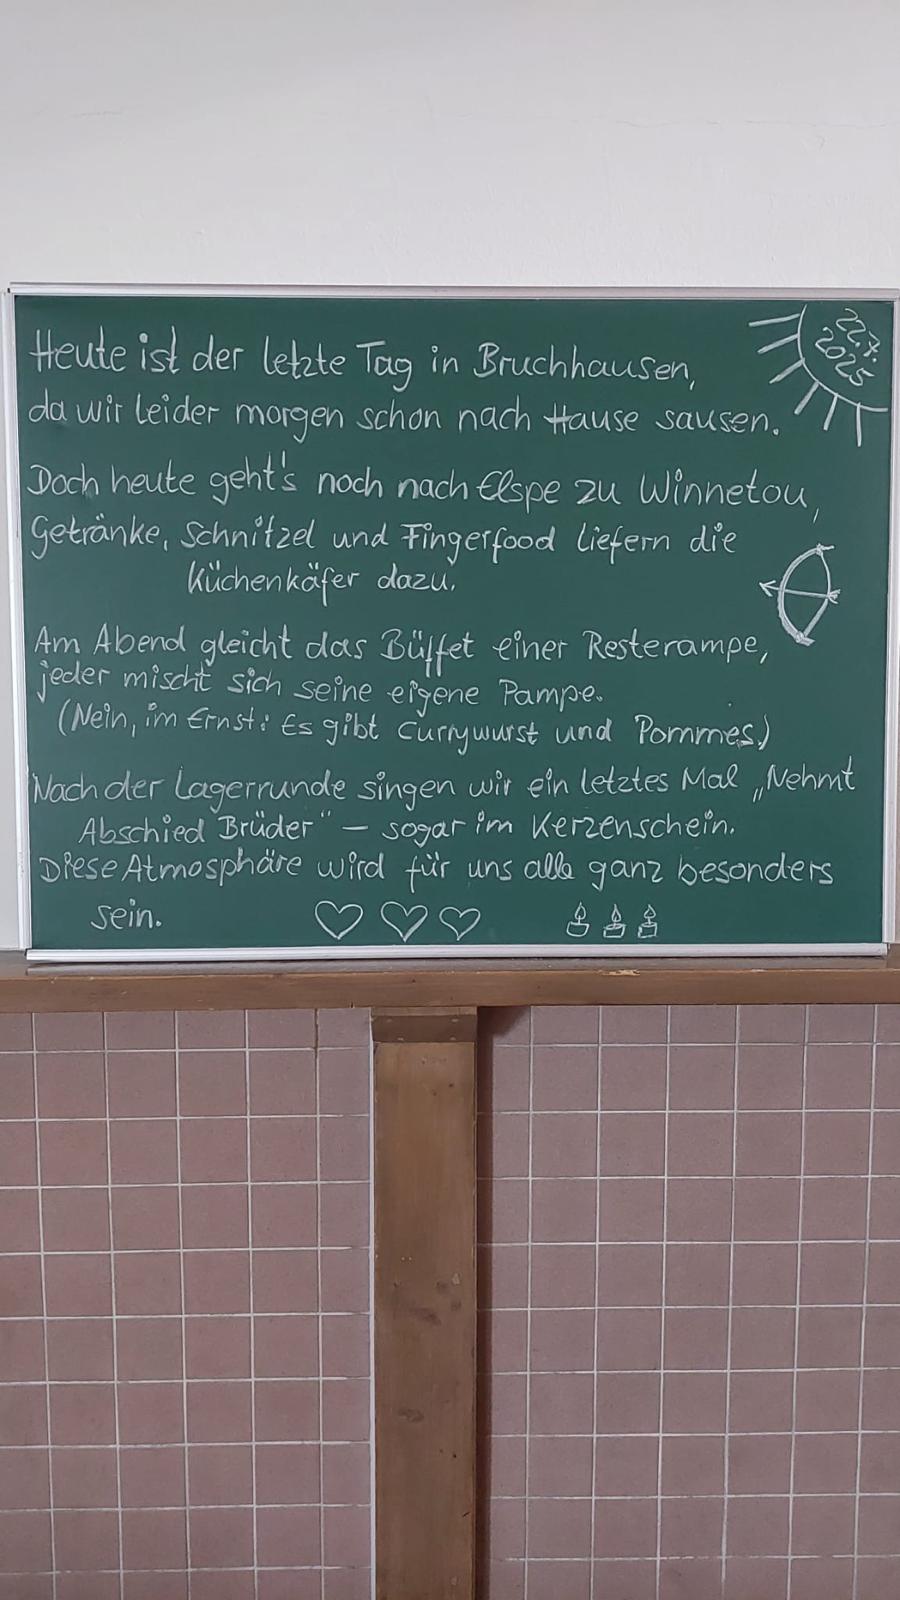 22.7.
2025
Heute ist der letzte Tag in Bruchhausen,
da wir leider morgen schon nach Hause sausen.
Doch heute geht's noch nach Elspe zu Winnetou,
Getränke, Schnitzel und Fingerfood liefern die
Küchenkäfer dazu.
Am Abend gleicht das Büffet einer Resterampe,
jeder mischt sich seine eigene Pampe.
(Nein, im Ernst: Es gibt Currywurst und Pommes.)
Nach der Lagerrunde singen wir ein letztes Mal „Nehmt
Abschied Brüder" – sogar im Kerzenschein.
Diese Atmosphäre wird für uns alle ganz besonders
sein.